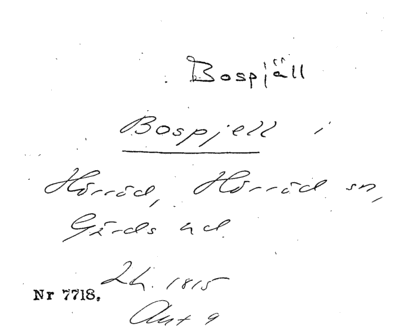 Bospjäll
Bospjell i
Hörröd, Hörröd sn,
Gärds hd
Lh. 1815
Nr 7718.
Akt 9